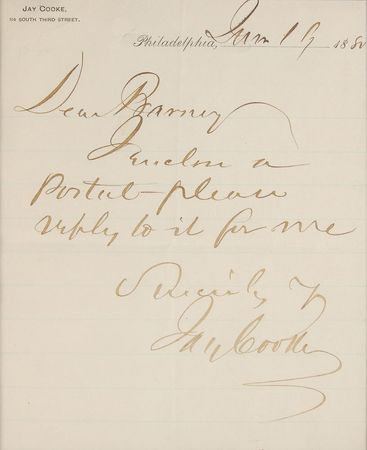 JAY COOKE,
114 SOUTH THIRD STREET.
Philadelphia, June 19 1880
Dear Barney
I enclose a
Postal - please
reply to it for me
Sincerely Y
Jay Cooke